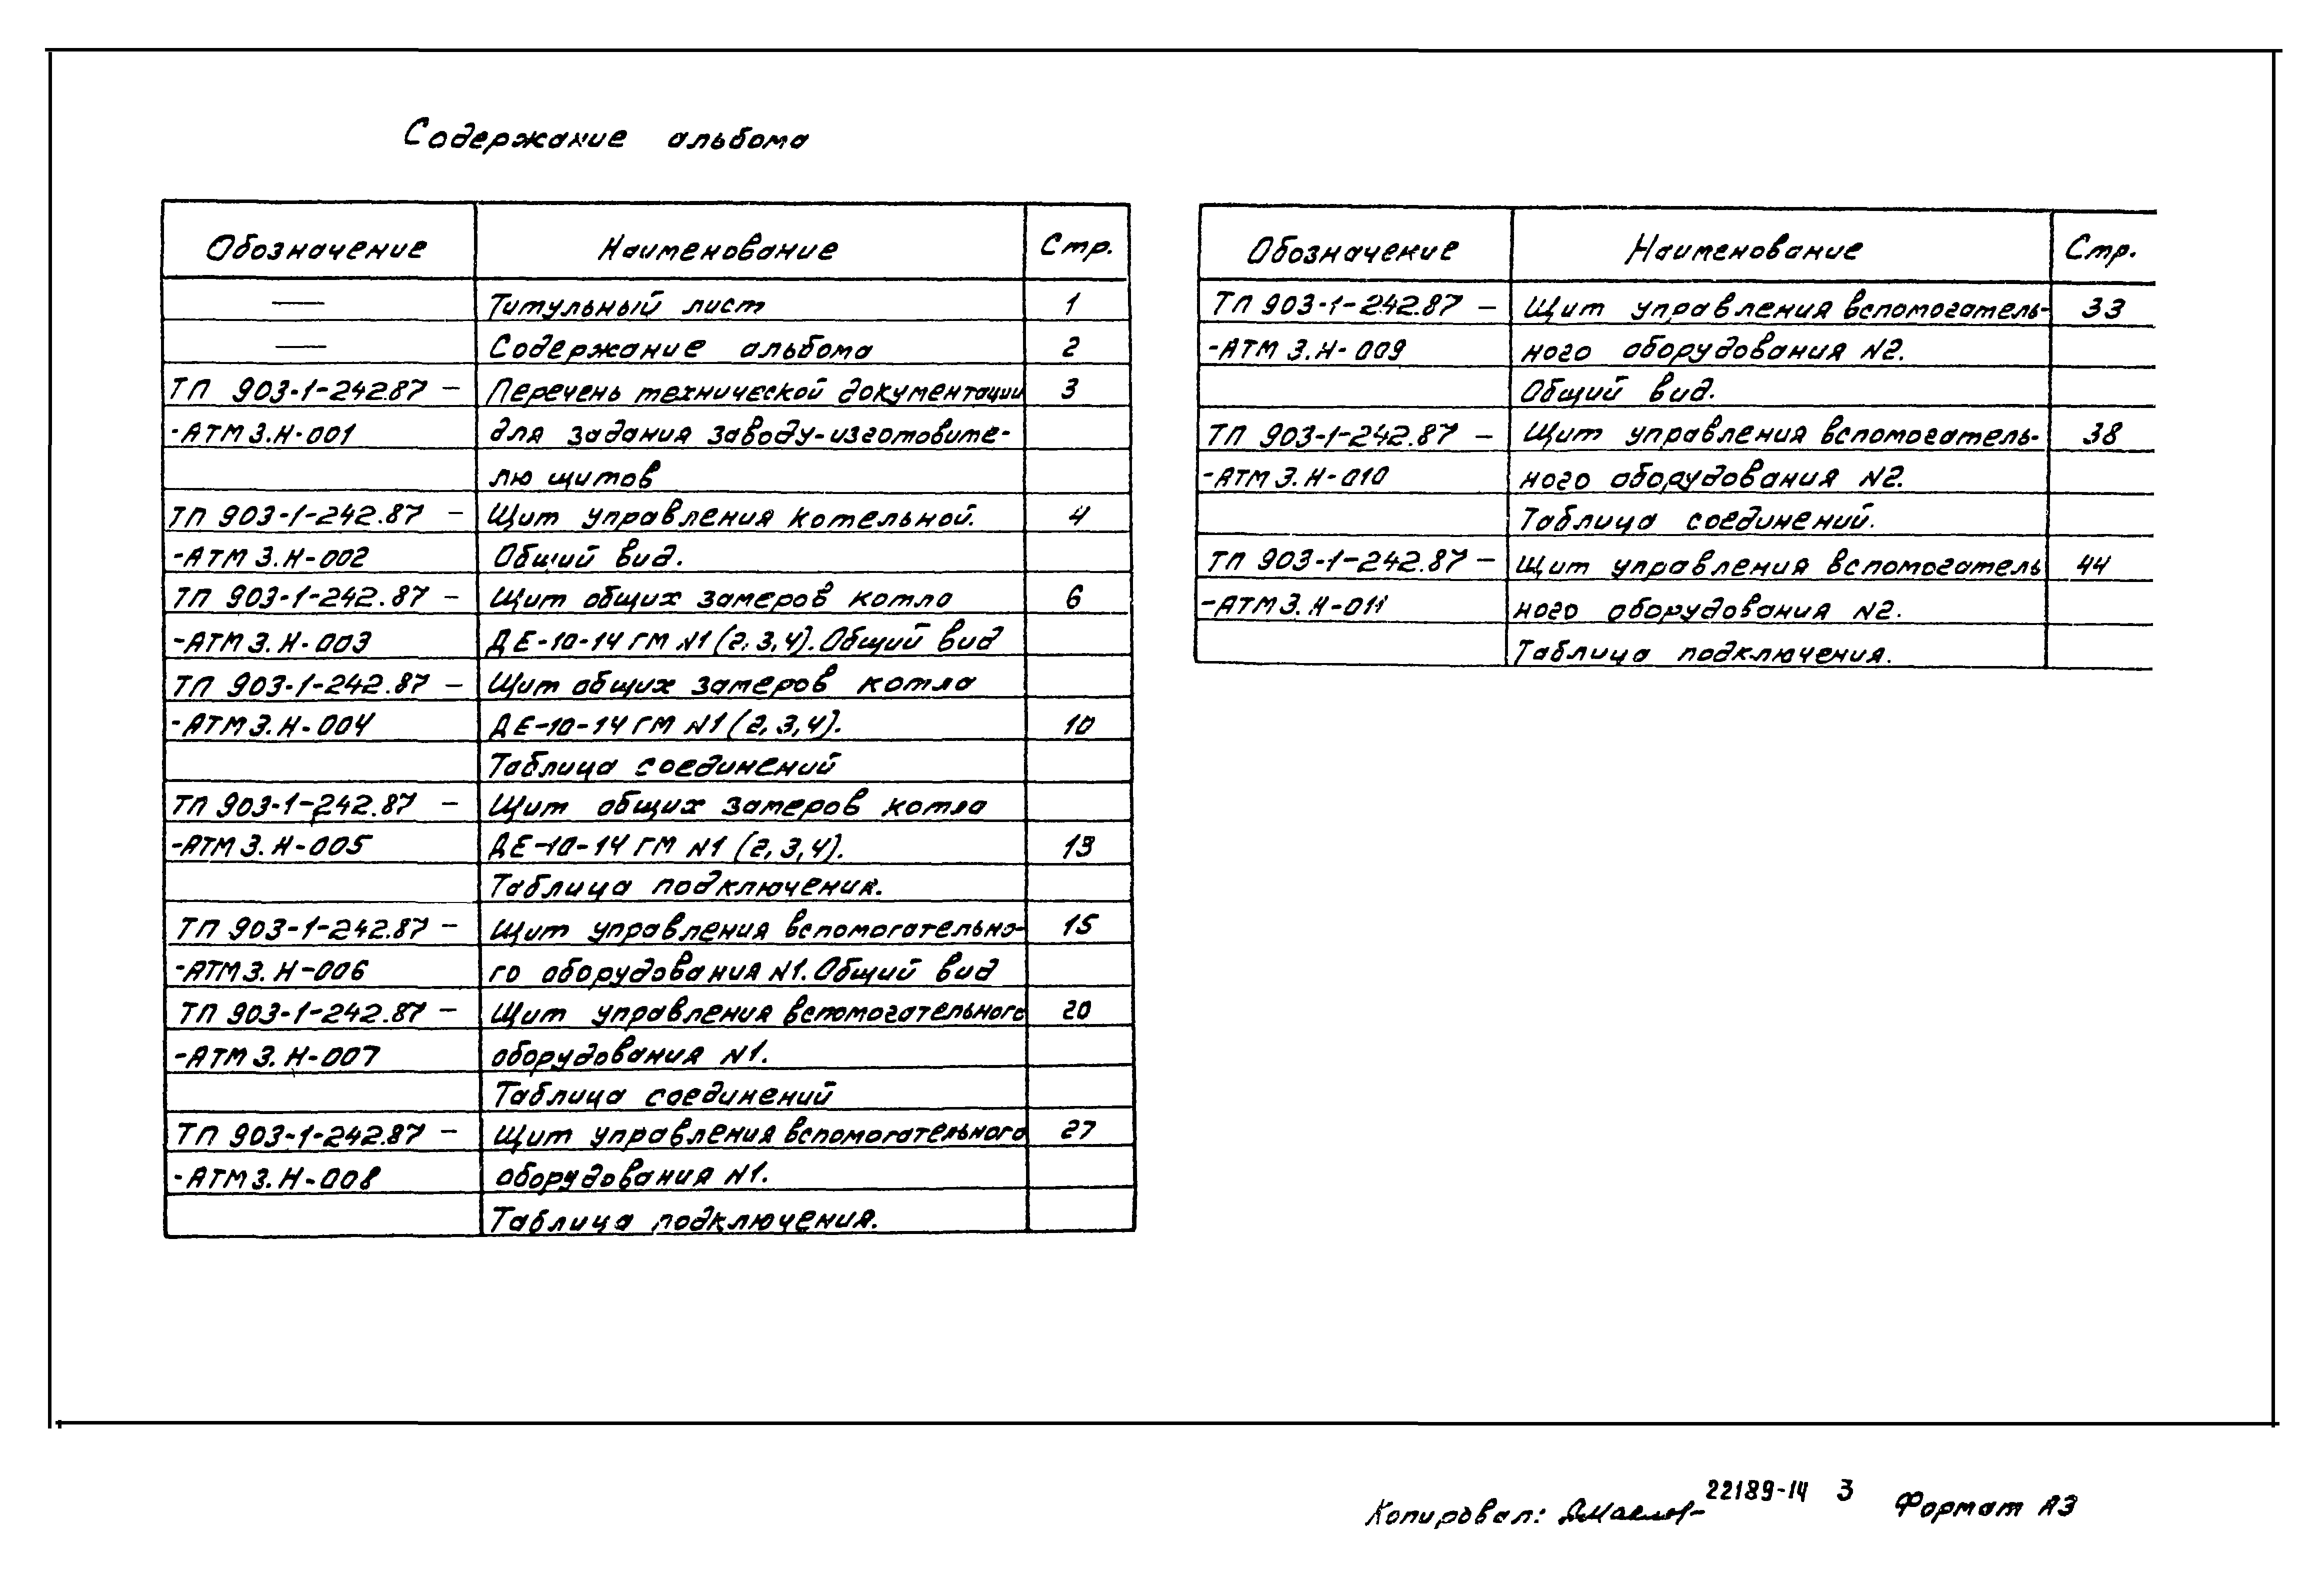 Содержание альбома
Обозначение Наименование Стр.
— Титульный лист 1
— Содержание альбома 2
ТП 903-1-242.87 — Перечень технической документации 3
-АТМ3.Н-001 для задания заводу-изготовите-
лю щитов
ТП 903-1-242.87 — Щит управления котельной. 4
-АТМ3.Н-002 Общий вид.
ТП 903-1-242.87 — Щит общих замеров котла 6
-АТМ3.Н-003 ДЕ-10-14 ГМ №1 (2,3,4). Общий вид
ТП 903-1-242.87 — Щит общих замеров котла
-АТМ3.Н-004 ДЕ-10-14 ГМ №1 (2,3,4). 10
Таблица соединений
ТП 903-1-242.87 — Щит общих замеров котла
-АТМ3.Н-005 ДЕ-10-14 ГМ №1 (2,3,4). 13
Таблица подключения.
ТП 903-1-242.87 — Щит управления вспомогательно- 15
-АТМ3.Н-006 го оборудования №1. Общий вид
ТП 903-1-242.87 — Щит управления вспомогательного 20
-АТМ3.Н-007 оборудования №1.
Таблица соединений
ТП 903-1-242.87 — Щит управления вспомогательного 27
-АТМ3.Н-008 оборудования №1.
Таблица подключения.
Обозначение Наименование Стр.
ТП 903-1-242.87 — Щит управления вспомогатель- 33
-АТМ3.Н-009 ного оборудования №2.
Общий вид.
ТП 903-1-242.87 — Щит управления вспомогатель- 38
-АТМ3.Н-010 ного оборудования №2.
Таблица соединений.
ТП 903-1-242.87 — Щит управления вспомогатель 44
-АТМ3.Н-011 ного оборудования №2.
Таблица подключения.
22189-14 3
Копировал: Формат А3